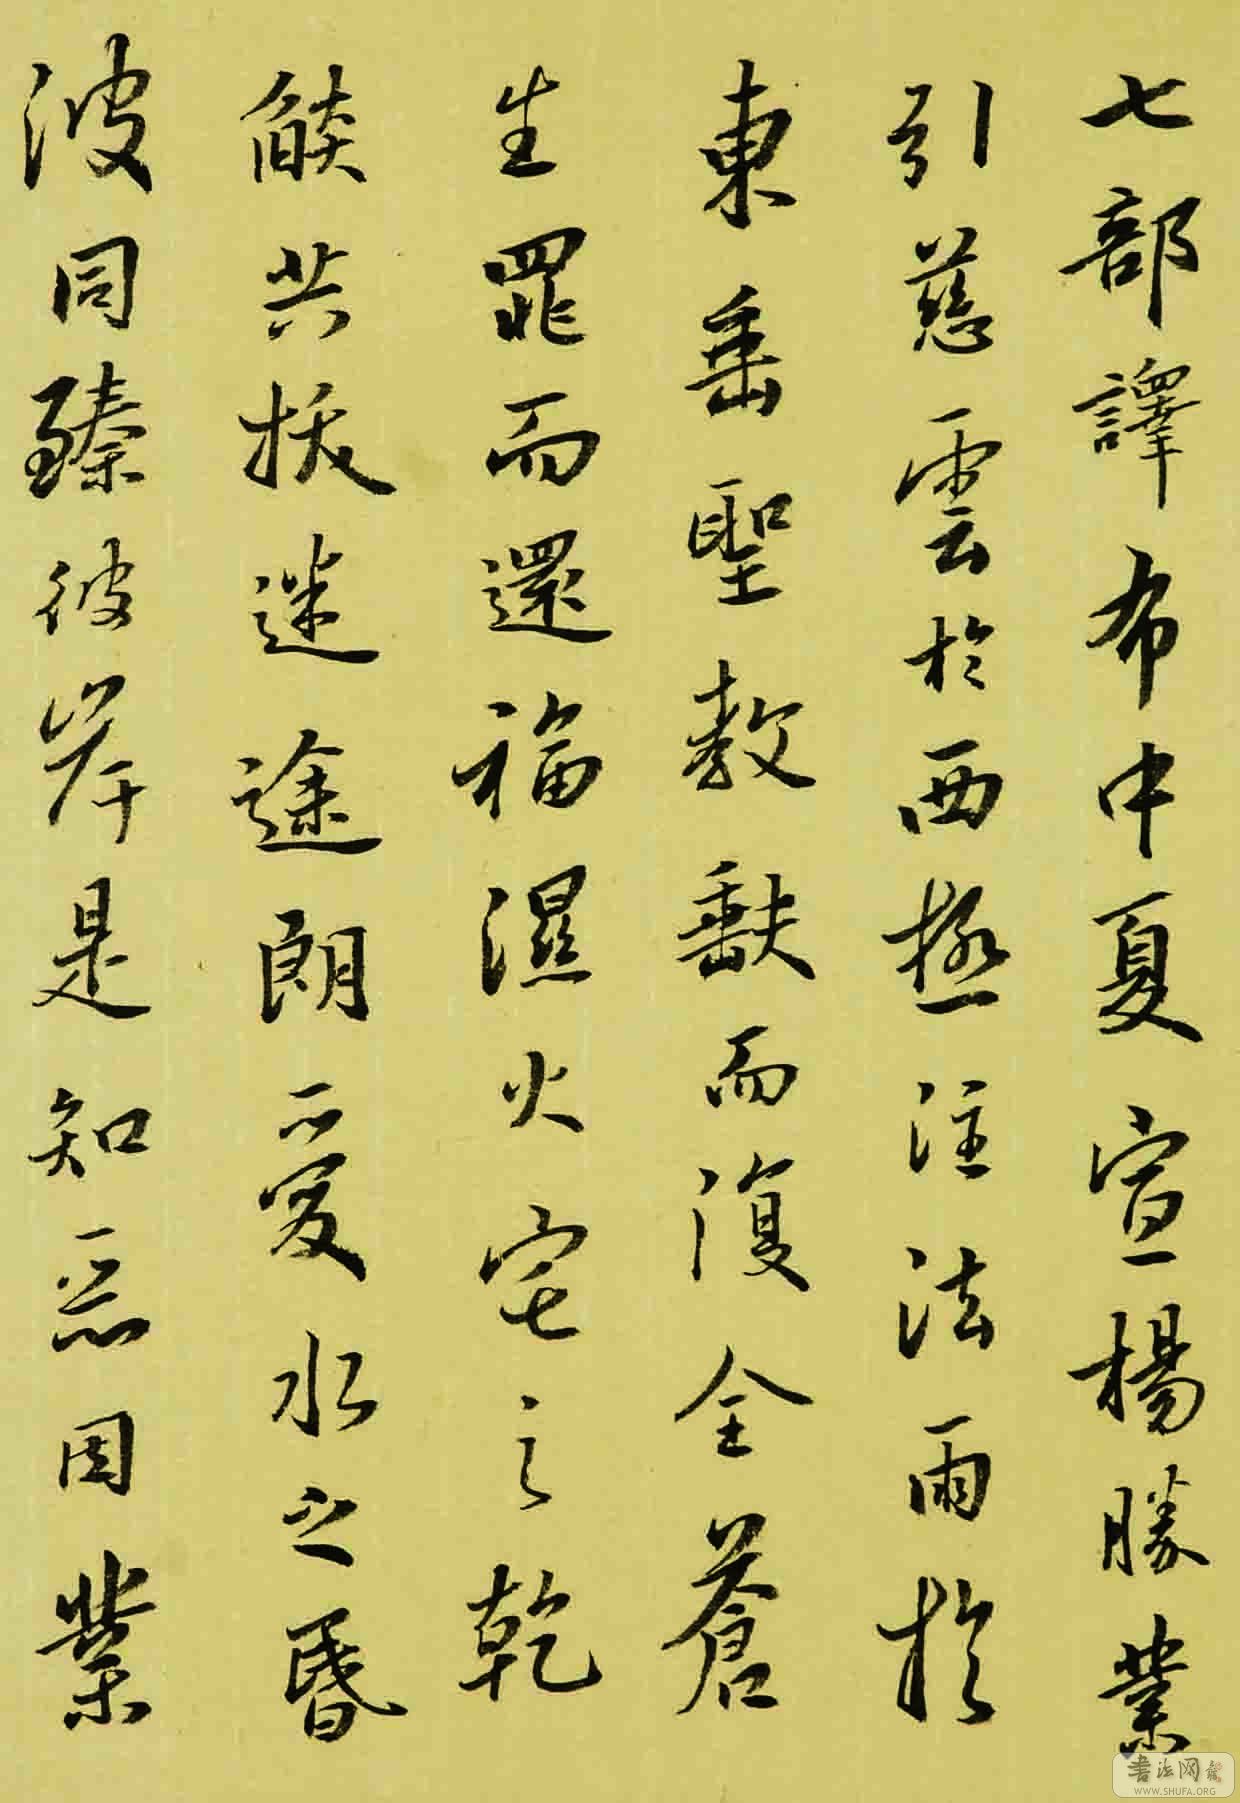 七部譯布中夏宣楊勝業
引慈雲於西極注法雨於
東垂聖教缺而復全蒼
生罪而還福濕火宅之乾
燄共拔迷途朗愛水之昏
波同臻彼岸是知惡因業
書法网
WWW.SHUFA.ORG